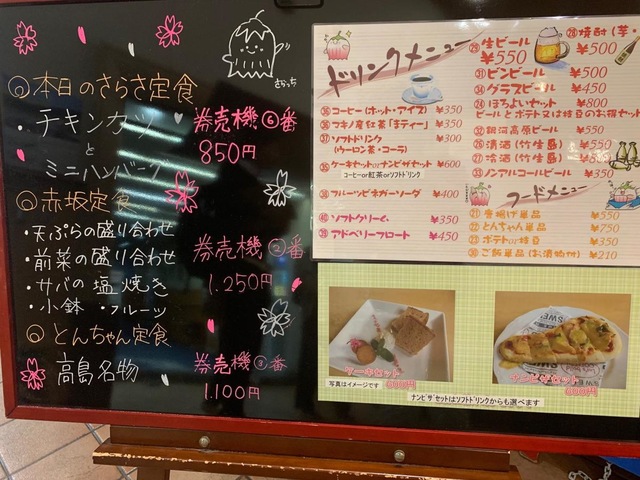 さらっち
◎本日のさらさ定食
・チキンカツ 券売機⑥番
と 850円
ミニハンバーグ
◎赤坂定食
・天ぷらの盛り合わせ
・前菜の盛り合わせ 券売機②番
・サバの塩焼き 1.250円
・小鉢 ・フルーツ
◎とんちゃん定食
高島名物 券売機③番
1.100円
ドリンクメニュー
㊱コーヒー(ホット・アイス) ¥350
ツキノ産紅茶「まティー」 ¥350
㊲ソフトドリンク ¥300
(ウーロン茶・コーラ)
ケーキセットorナンピザセット ¥600
コーヒーor紅茶orソフトドリンク
㊳フルーツビネガーソーダ ¥400
㊵ソフトクリーム ¥350
㊴アドベリーフロート ¥450
生ビール ¥550
㉘焼酎(芋・
¥500
㉛ビンビール ¥500
㉞グラスビール ¥450
㉔ほろよいセット ¥800
ビールとポテト又は枝豆のお得セット
㉜銀河高原ビール ¥550
㉖清酒(竹生嶋) ¥550
㉗冷酒(竹生嶋) ¥550
㉝ノンアルコールビール ¥350
フードメニュー
㉑唐揚げ単品 ¥550
㉒とんちゃん単品 ¥750
㉓ポテトor枝豆 ¥350
㉚ご飯単品(お漬物付) ¥210
ケーキセット
写真はイメージです 600円
ナンピザセット
600円
ナンピザセットはソフトドリンクからも選べます